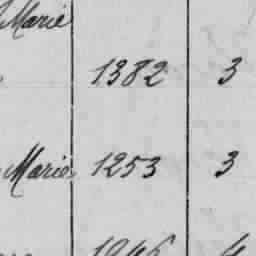 Marie
1382 3
Marie 1253 3
1246 4